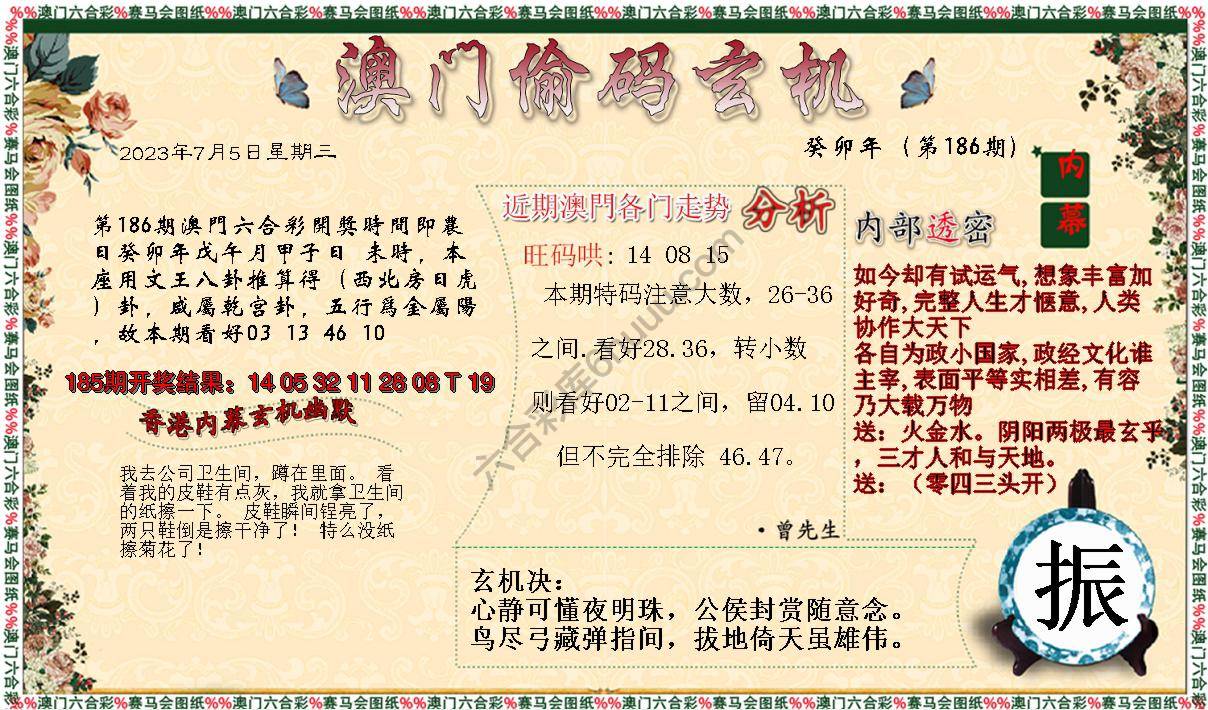 %%澳门六合彩%赛马会图纸%%澳门六合彩%赛马会图纸%%澳门六合彩%赛马会图纸%%澳门六合彩%赛马会图纸%%澳门六合彩%赛马会图纸%%澳门六合彩%赛马会图纸%%澳门六合彩%赛马会图纸
澳门偷码玄机
2023年7月5日星期三
癸卯年（第186期）
内幕
第186期澳門六合彩開獎時間即農
日癸卯年戊午月甲子日 未時，本
座用文王八卦推算得（西北房日虎
）卦，咸屬乾宫卦，五行爲金屬陽
，故本期看好03 13 46 10
185期开奖结果：14 05 32 11 26 08 T 19
香港内幕玄机幽默
我去公司卫生间，蹲在里面。 看
着我的皮鞋有点灰，我就拿卫生间
的纸擦一下。 皮鞋瞬间锃亮了，
两只鞋倒是擦干净了！ 特么没纸
擦菊花了！
近期澳門各门走势 分析
旺码哄: 14 08 15
本期特码注意大数，26-36
之间.看好28.36，转小数
则看好02-11之间，留04.10
但不完全排除 46.47。
·曾先生
内部透密
如今却有试运气,想象丰富加
好奇,完整人生才惬意,人类
协作大天下
各自为政小国家,政经文化谁
主宰,表面平等实相差,有容
乃大载万物
送：火金水。阴阳两极最玄乎
，三才人和与天地。
送：（零四三头开）
玄机决：
心静可懂夜明珠，公侯封赏随意念。
鸟尽弓藏弹指间，拔地倚天虽雄伟。
振
%%澳门六合彩%赛马会图纸%%澳门六合彩%赛马会图纸%%澳门六合彩%赛马会图纸%%澳门六合彩%赛马会图纸%%澳门六合彩%赛马会图纸%%澳门六合彩%赛马会图纸%%澳门六合彩%赛马会图纸